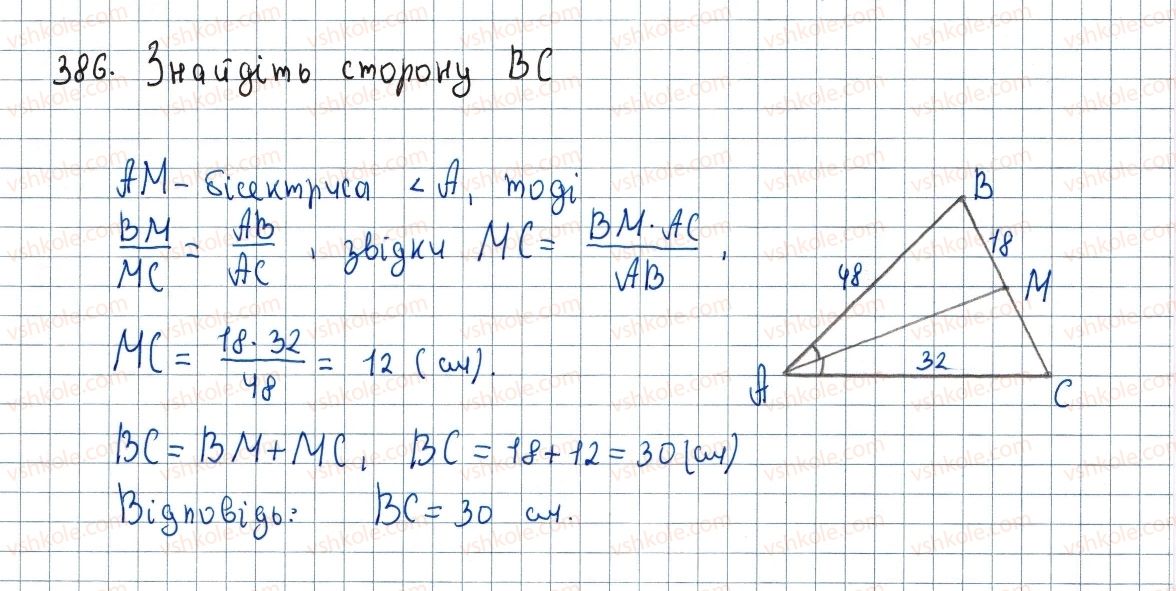 386. Знайдіть сторону ВС
АМ - бісектриса < А, тоді
BM/MC = AB/AC, звідки MC = BM·AC/AB,
MC = 18·32/48 = 12 (см).
BC = BM + MC, BC = 18 + 12 = 30 (см)
Відповідь: BC = 30 см.
B
18
48
M
32
A
C
vshkole.com